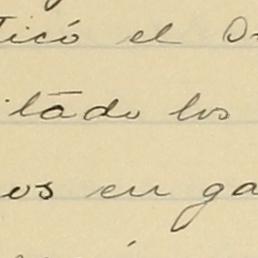 ticó el D
itado los
os en ga